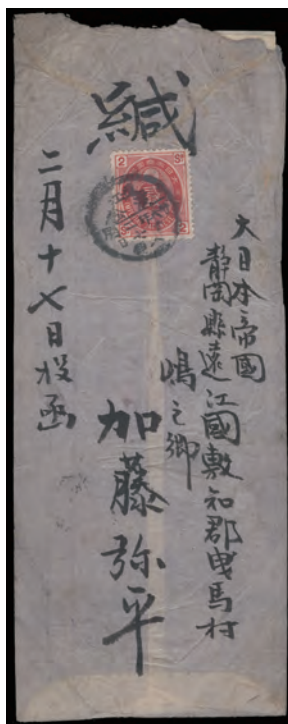 緘
大日本帝國
靜岡縣遠江國敷知郡曳馬村
嶋之郷
加藤弥平
二月十七日投函
2 Sn
2